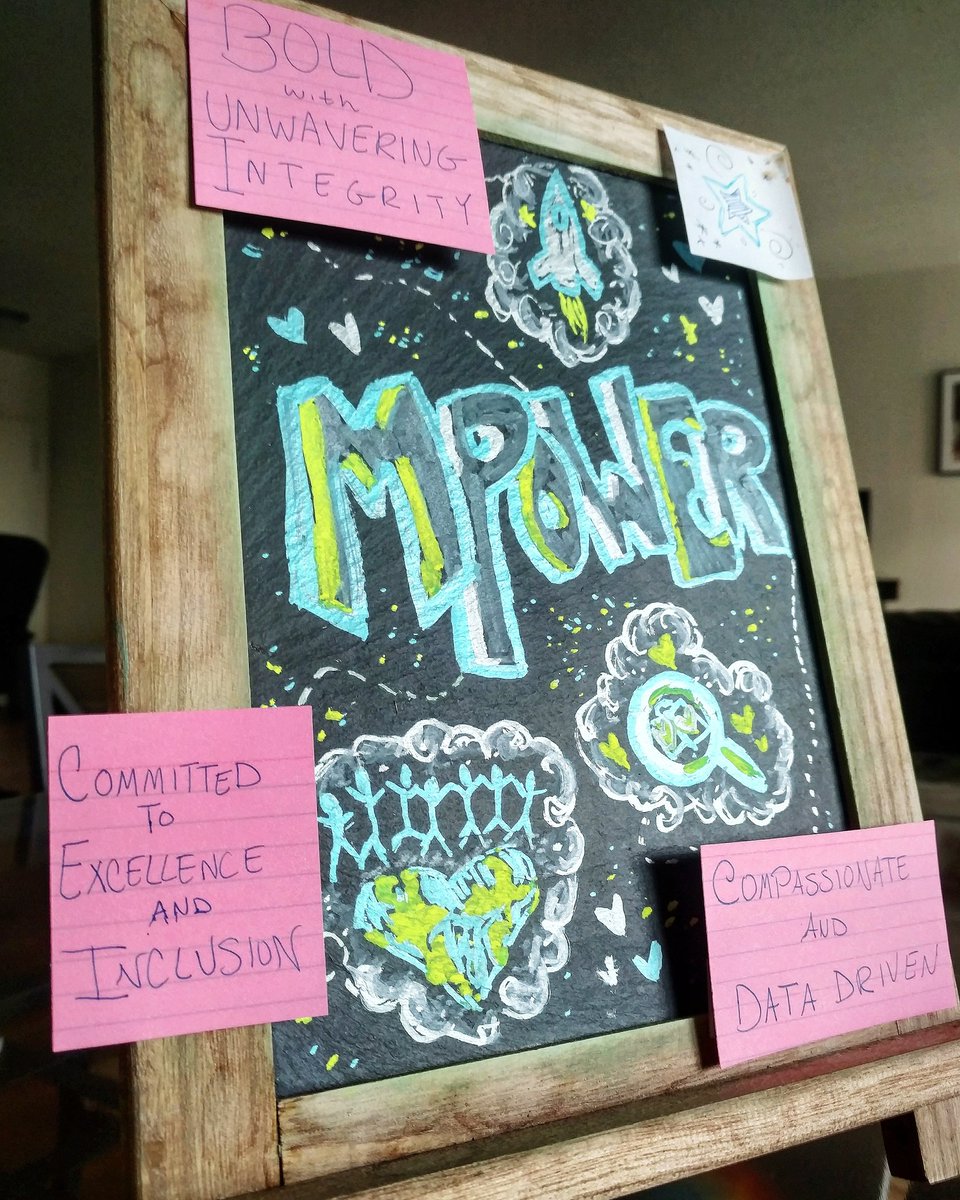 BOLD
with
UNWAVERING
INTEGRITY
MPOWER
COMMITTED
TO
EXCELLENCE
AND
INCLUSION
COMPASSIONATE
AND
DATA DRIVEN